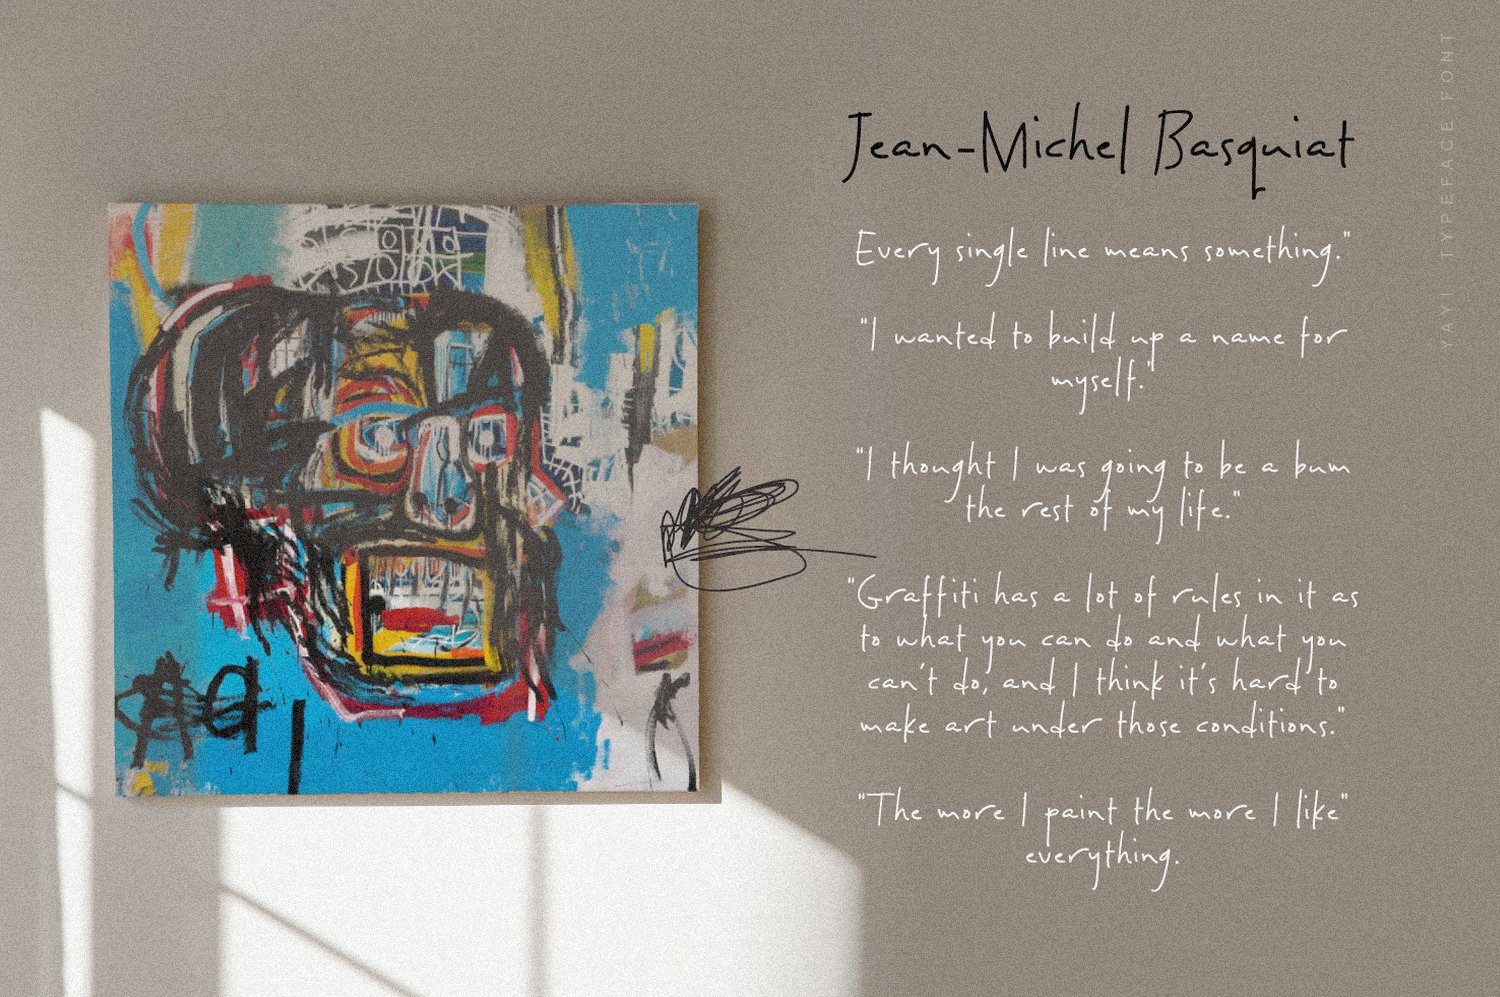 Jean-Michel Basquiat
Every single line means something."
"I wanted to build up a name for
myself."
"I thought I was going to be a bum
the rest of my life."
"Graffiti has a lot of rules in it as
to what you can do and what you
can't do, and I think it's hard to
make art under those conditions."
"The more I paint the more I like"
everything.
YAYL TYPEFACE FONT